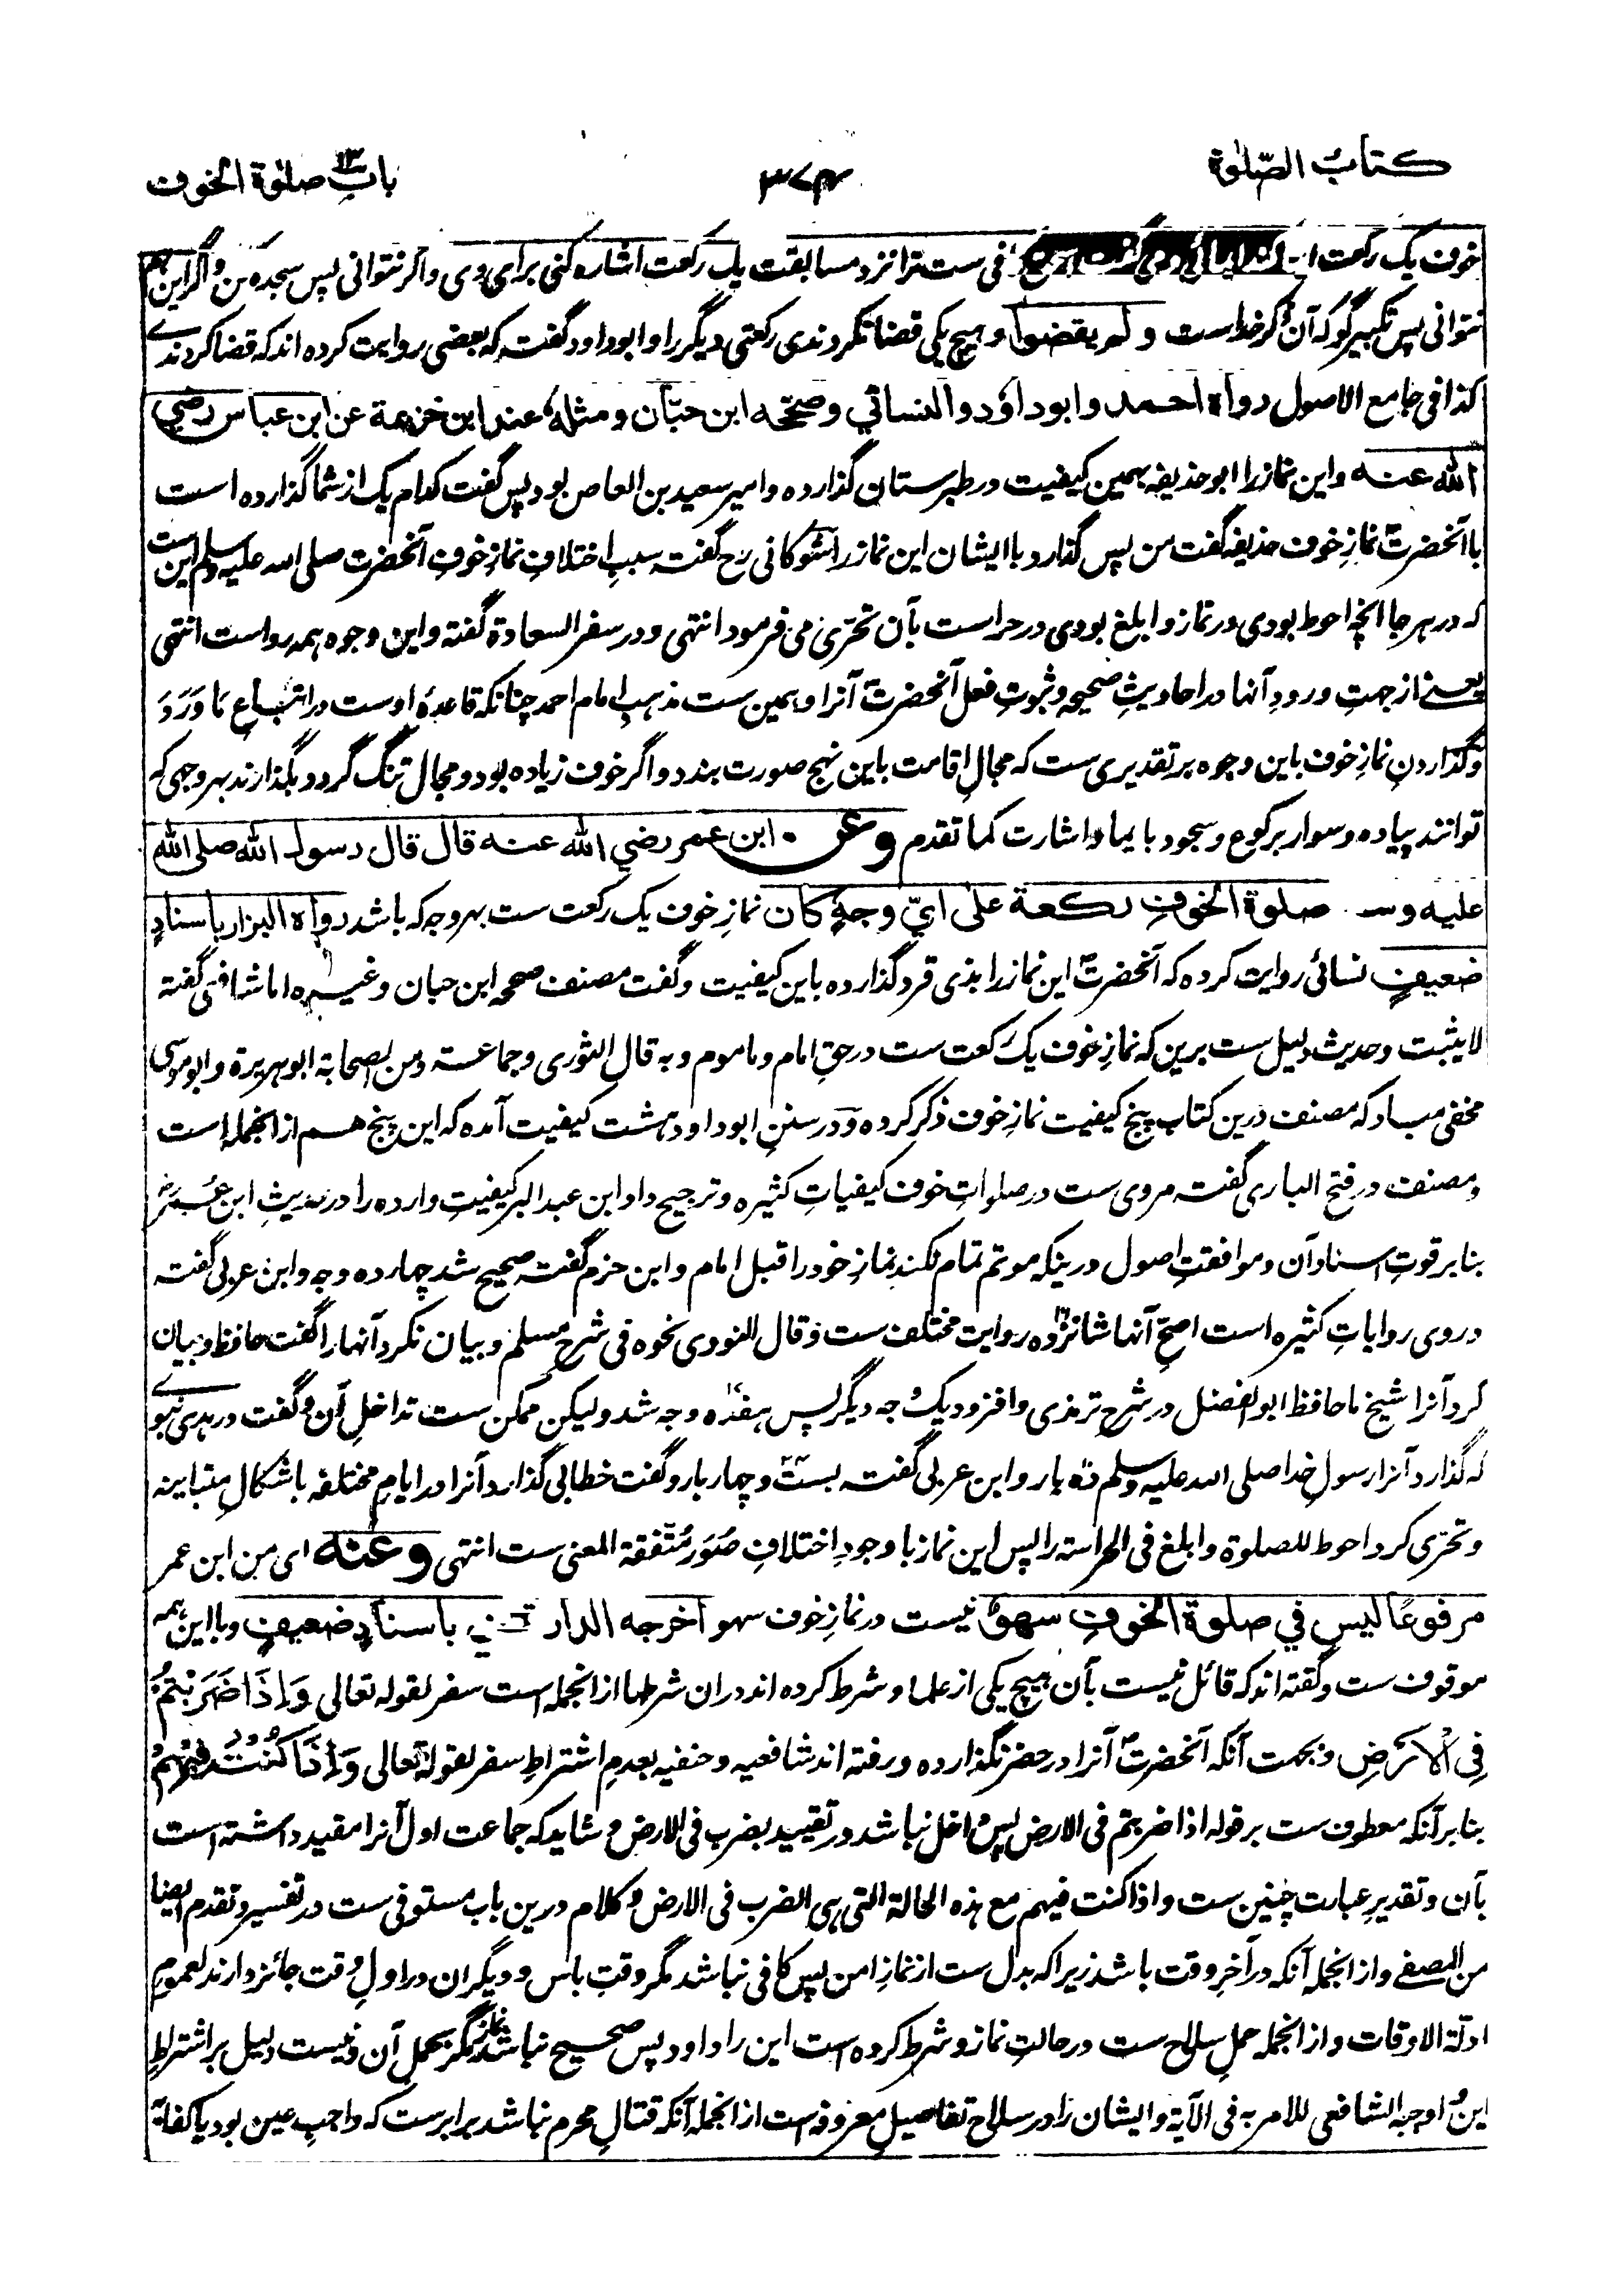 كتاب الصّلوٰة
۳۷۴
باب ۱۳ صلوٰة الخوف
خوف یک رکعت فی ست ترا نزد مسابقت یک رکعت اشاره کنی برای وی و اگر نتوانی پس سجده کن و اگر این هم
نتوانی پس تکبیر گو که آن ذکر خداست ولم یقضوا و هیچ یکی قضا نکردندی رکعتی دیگر را و ابوداود گفته که بعضی روایت کرده اند که قضا کردندے
کذا فی جامع الاصول رواه احمد وابوداؤد والنسائي وصحّحه ابن حبّان ومثله عند ابن خزيمة عن ابن عباس رضي
الله عنه و این نماز را ابو حذیفه بهمین کیفیت در طبرستان گذارده و امیر سعید بن العاص بود پس گفت کدام یک از شما گذارده است
با آنحضرتؐ نمازِ خوف حذیفه گفت من پس گذارد با ایشان این نماز را شوکانی رح گفته سببِ اختلافِ نمازِ خوفِ آنحضرت صلی الله علیه وسلم این ست
که در هر جا انچه احوط بودی در نماز و ابلغ بودی در حراست بآن تحرّی می فرمود انتهی و در سفر السعادة گفته و این وجوه همه رواست انتهی
یعنے از جهتِ ورودِ آنها در احادیثِ صحیحه و ثبوتِ فعل آنحضرتؐ آنرا و همین ست مذهبِ امام احمد چنانکه قاعدهٔ اوست در اتّباعِ مَا وَرَدَ
و گذاردنِ نمازِ خوف باین وجوه بر تقدیری ست که مجالِ اقامت باین نهج صورت بندد و اگر خوف زیاده بود و مجال تنگ گردد بگذارند بهر وجهی که
توانند پیاده و سوار برکوع و سجود با یما و اشارت کما تقدم وعن ابن عمر رضي الله عنه قال قال رسول الله صلى الله
عليه وسـ صلوة الخوفِ ركعة على ايّ وجهٍ كان نمازِ خوف یک رکعت ست بهر وجه که باشد رواه البزار باسنادٍ
ضعيفٍ نسائی روایت کرده که آنحضرتؐ این نماز را بذی قرد گذارده باین کیفیت و گفت مصنف صححه ابن حبان و غیره اما شافعی گفته
لا یثبت و حدیث دلیل ست برین که نمازِ خوف یک رکعت ست در حقِ امام و ماموم و به قال الثوری و جماعته و من الصحابة ابوهریرة و ابو موسی
مخفی مباد که مصنف درین کتاب پنج کیفیت نمازِ خوف ذکر کرده و در سننِ ابوداود هشت کیفیت آمده که این پنج هم از انجمله است
و مصنف در فتح الباری گفته مروی ست در صلواتِ خوف کیفیاتِ کثیره و ترجیح داد ابن عبد البر کیفیتِ وارده را در حدیثِ ابن عمرؓ
بنابر قوتِ اسناد آن و موافقتِ اصول درینکه موتم تمام نکند نمازِ خود را قبل امام و ابن حزم گفته صحیح شد چهارده وجه و ابن عربی گفته
در وی روایاتِ کثیره است اصحِّ آنها شانزده روایت مختلف ست و قال النووی نحوه فی شرح مسلم و بیان نکرد آنها را گفت حافظ و بیان
کرد آنرا شیخ ما حافظ ابو الفضل در شرحِ ترمذی و افزود یک وجه دیگر پس هفده وجه شد و لیکن ممکن ست تداخلِ آن و گفت در هدی نبوے
که گذارد آنرا رسولِ خدا صلی الله علیه وسلم ده بار و ابن عربی گفته بست و چهار بار و گفت خطابی گذارد آنرا در ایامِ مختلفه باشکالِ متباینه
و تحرّی کرد احوط للصلوة و ابلغ فی الحراسته را پس این نماز با وجودِ اختلافِ صُوَر متّفقة المعنی ست انتهی وعنه ای من ابن عمر
مرفوعًا ليس في صلوة الخوفِ سهوٌ نیست در نمازِ خوف سهو اخرجه الدار قـ ني باسنادٍ ضعيفٍ و با این همه
موقوف ست و گفته اند که قائل نیست بآن هیچ یکی از علما و شرط کرده اند در ان شرطها از انجمله است سفر لقوله تعالی وَاِذَا ضَرَبْتُمْ
فِی الْاَرْضِ و بجهت آنکه آنحضرتؐ آنرا در حضر نگذارده و رفته اند شافعیه و حنفیه بعدمِ اشتراطِ سفر لقوله تعالی وَاِذَا كُنْتَ فِيْهِمْ
بنا بر آنکه معطوف ست بر قوله اذا ضربتم فی الارض پس داخل نباشد در تقیید بضرب فی الارض و شاید که جماعت اول آنرا مقید داشته است
بآن و تقدیرِ عبارت چنین ست و اذا کنت فیهم مع هذه الحالة التی هی الضرب فی الارض و کلام درین باب مستوفی ست در تفسیر و تقدم ایضا
من المصفے و از انجمله آنکه در آخر وقت باشد زیرا که بدل ست از نمازِ امن پس کافی نباشد مگر وقتِ یاس و دیگران در اولِ وقت جائز دارند لعمومِ
ادلّة الاوقات و از انجمله حملِ سلاح ست در حالتِ نماز و شرط کرده است این را داود پس صحیح نباشد نماز مگر بحمل آن و نیست دلیل بر اشتراطِ
این و اوجبه الشافعی للامر به فی الآیة و ایشان را در سلاح تفاصیلِ معروفه است از انجمله آنکه قتالِ محرم نباشد برابرست که واجبِ عین بود یا کفایة